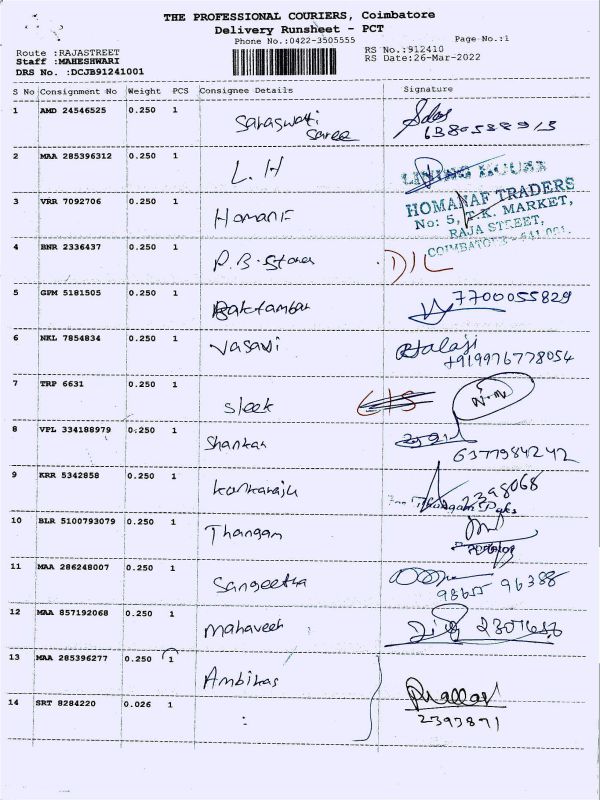 THE PROFESSIONAL COURIERS, Coimbatore
Delivery Runsheet - PCT
Phone No.:0422-3505555
Page No.:1
Route :RAJASTREET
Staff :MAHESHWARI
DRS No. :DCJB91241001
RS No.:912410
RS Date:26-Mar-2022
S No Consignment No Weight PCS Consignee Details Signature
1 AMD 24546525 0.250 1
Saraswati
Saree
2 MAA 285396312 0.250 1
L.H
3 VRR 7092706 0.250 1
HOMANAF TRADERS
No: 5, T.K. MARKET,
RAJA STREET,
COIMBATORE - 641 001.
4 BNR 2336437 0.250 1
P.B.Stores D/L
5 GPM 5181505 0.250 1
7700055829
6 NKL 7854834 0.250 1
Vasavi Balaji
+919976778054
7 TRP 6631 0.250 1
Sleek
8 VPL 334188979 0.250 1
Shankar
6377984242
9 KRR 5342858 0.250 1
2398068
10 BLR 5100793079 0.250 1
Thangam
11 MAA 286248007 0.250 1
Sangeetha
98655 96388
12 MAA 857192068 0.250 1
Mahaveer
13 MAA 285396277 0.250 1
Ambikas
14 SRT 8284220 0.026 1
2393871